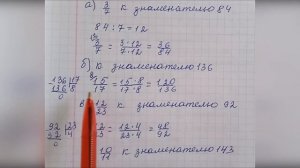 а) 3/7 к знаменателю 84
84 : 7 = 12
3/7 = 3·12/7·12 = 36/84
б) к знаменателю 136
136 | 17
136 | 8
0
15/17 = 15·8/17·8 = 120/136
в) 12/23 к знаменателю 92
92 | 23
92 | 4
0
12/23 = 12·4/23·4 = 48/92
10/11 к знаменателю 143